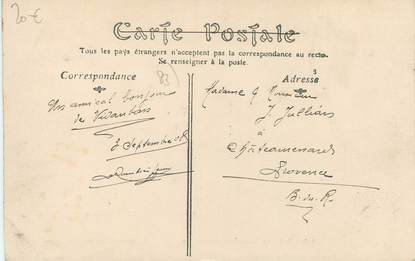 20€
Carte Postale
Tous les pays étrangers n'acceptent pas la correspondance au recto.
Se renseigner à la poste.
Correspondance
Adresse
3
83
amical bonjour
de
Septembre 08
Madame & Monsieur
J. Jullian
à
Châteaurenard
Provence
B. du R.